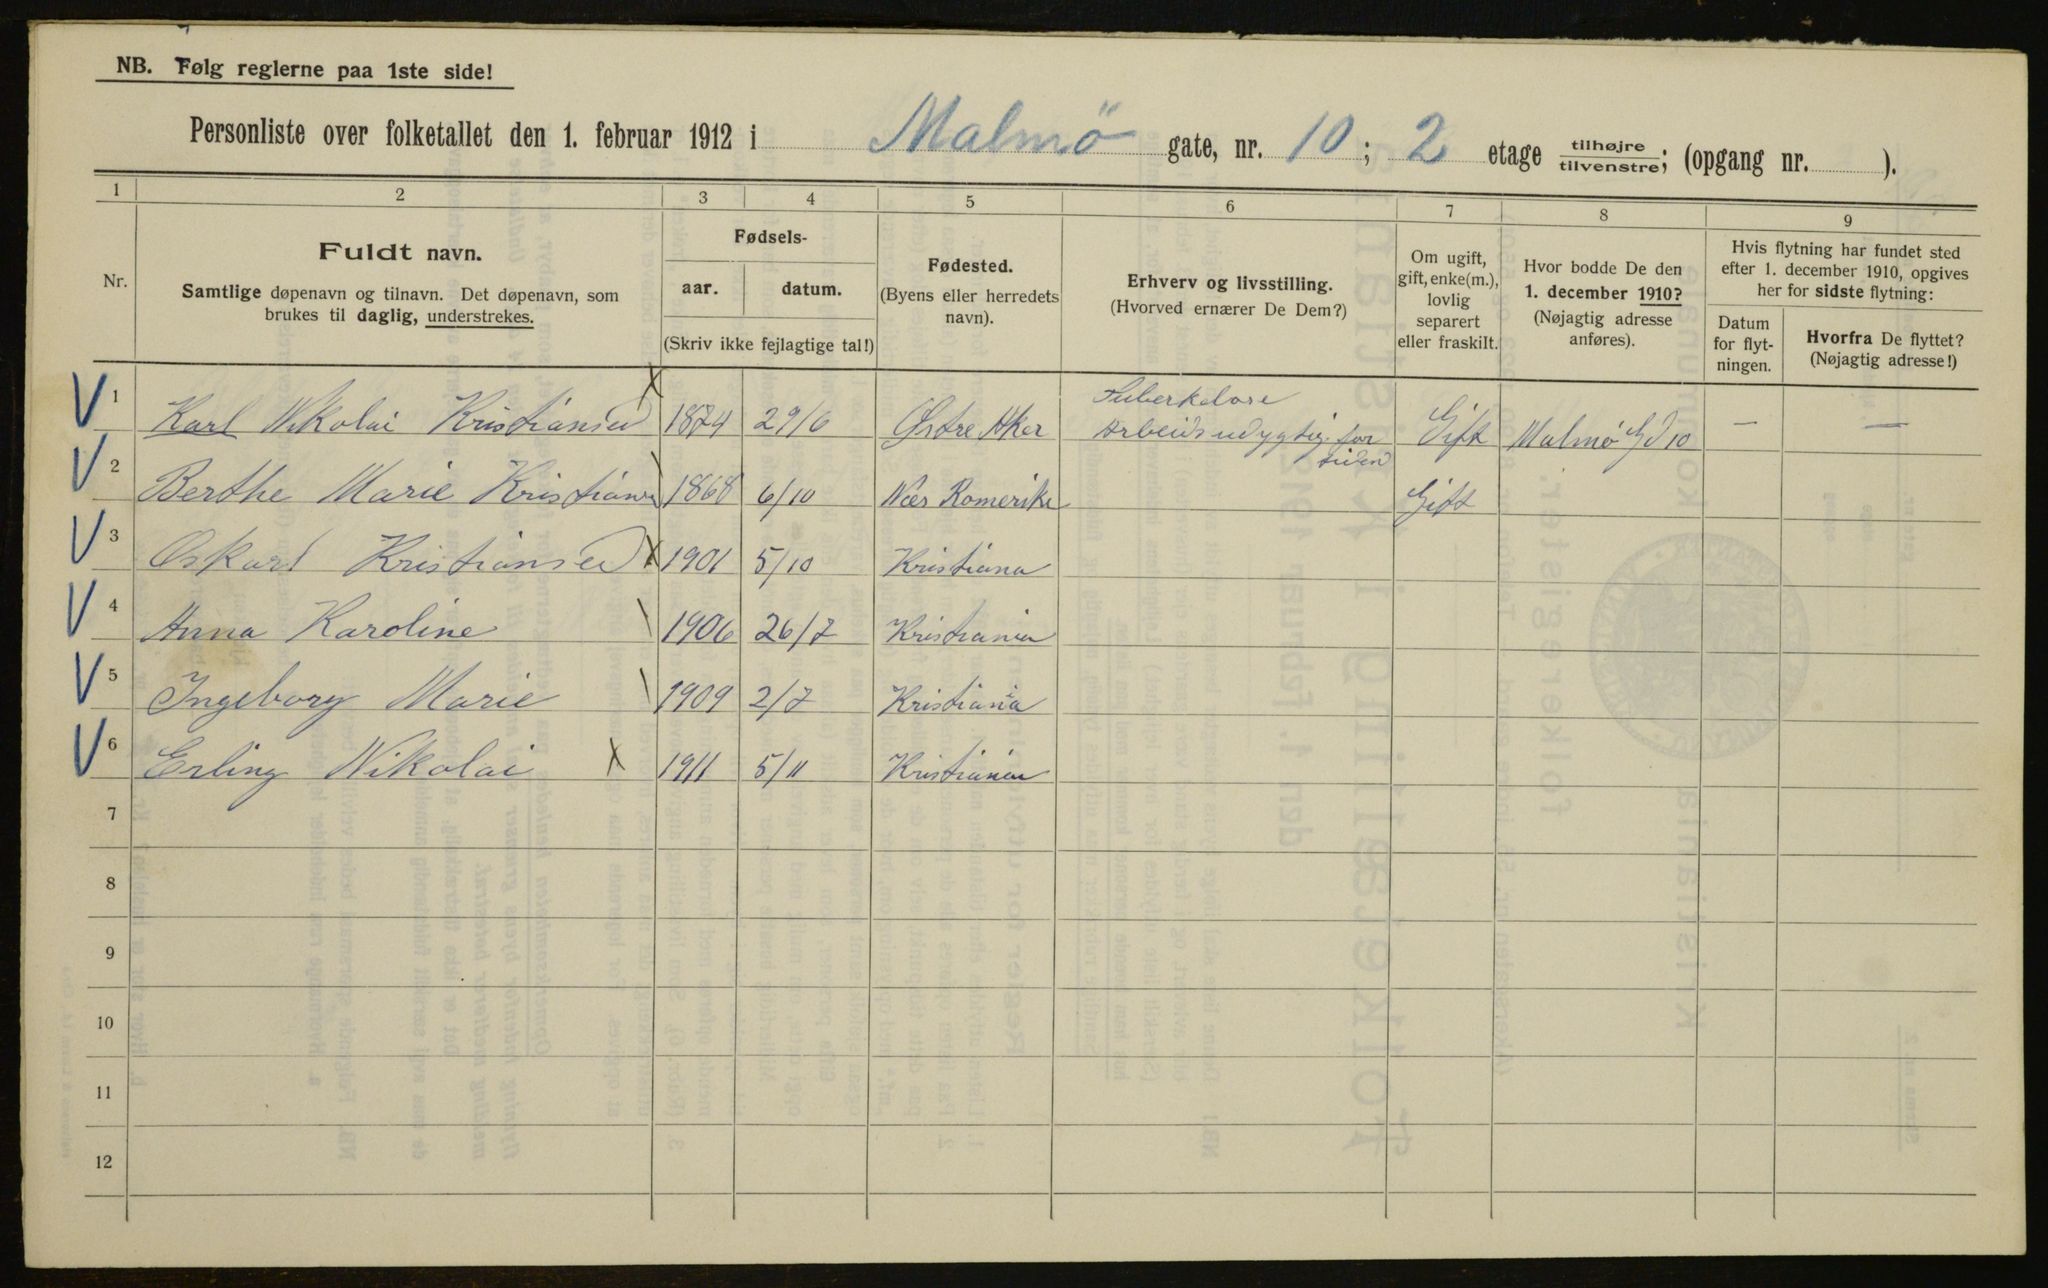 NB. Følg reglerne paa 1ste side!
Personliste over folketallet den 1. februar 1912 i Malmö gate, nr. 10; 2 etage tilhøjre/tilvenstre; (opgang nr. ).
1 2 3 4 5 6 7 8 9
Nr.
Fuldt navn.
Samtlige døpenavn og tilnavn. Det døpenavn, som
brukes til daglig, understrekes.
Fødsels-
aar. datum.
(Skriv ikke fejlagtige tal!)
Fødested.
(Byens eller herredets
navn).
Erhverv og livsstilling.
(Hvorved ernærer De Dem?)
Om ugift,
gift, enke(m.),
lovlig
separert
eller fraskilt.
Hvor bodde De den
1. december 1910?
(Nøjagtig adresse
anføres).
Hvis flytning har fundet sted
efter 1. december 1910, opgives
her for sidste flytning:
Datum
for flyt-
ningen.
Hvorfra De flyttet?
(Nøjagtig adresse!)
V 1 Karl Nikolai Kristiansen X 1874 29/6 Østre Aker Tuberkelose
Arbeidsudygtig for
tiden Gift Malmö Gd 10 — —
V 2 Berthe Marie Kristiansen \ 1868 6/10 Næs Romerike Gift
V 3 Oskarl Kristiansen X 1901 5/10 Kristiana
V 4 Anna Karoline \ 1906 26/7 Kristiania
V 5 Ingeborg Marie \ 1909 2/7 Kristiania
V 6 Erling Nikolai X 1911 5/11 Kristiania
7
8
9
10
11
12